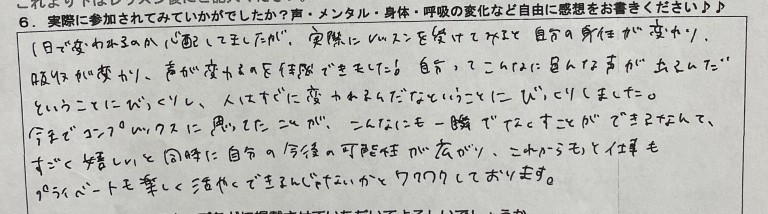 6．実際に参加されてみていかがでしたか？声・メンタル・身体・呼吸の変化など自由に感想をお書きください♪♪
1日で変われるのか心配してましたが、実際にレッスンを受けてみると自分の身体が変わり、
呼吸が変わり、声が変わるのを体感できました！自分ってこんなに色んな声が出るんだ
ということにびっくりし、人はすぐに変われるんだなということにびっくりしました。
今までコンプレックスに思ってたことが、こんなにも一瞬でなくすことができるなんて、
すごく嬉しいと同時に自分の今後の可能性が広がり、これからもっと仕事も
プライベートも楽しく活やくできるんじゃないかとワクワクしております。